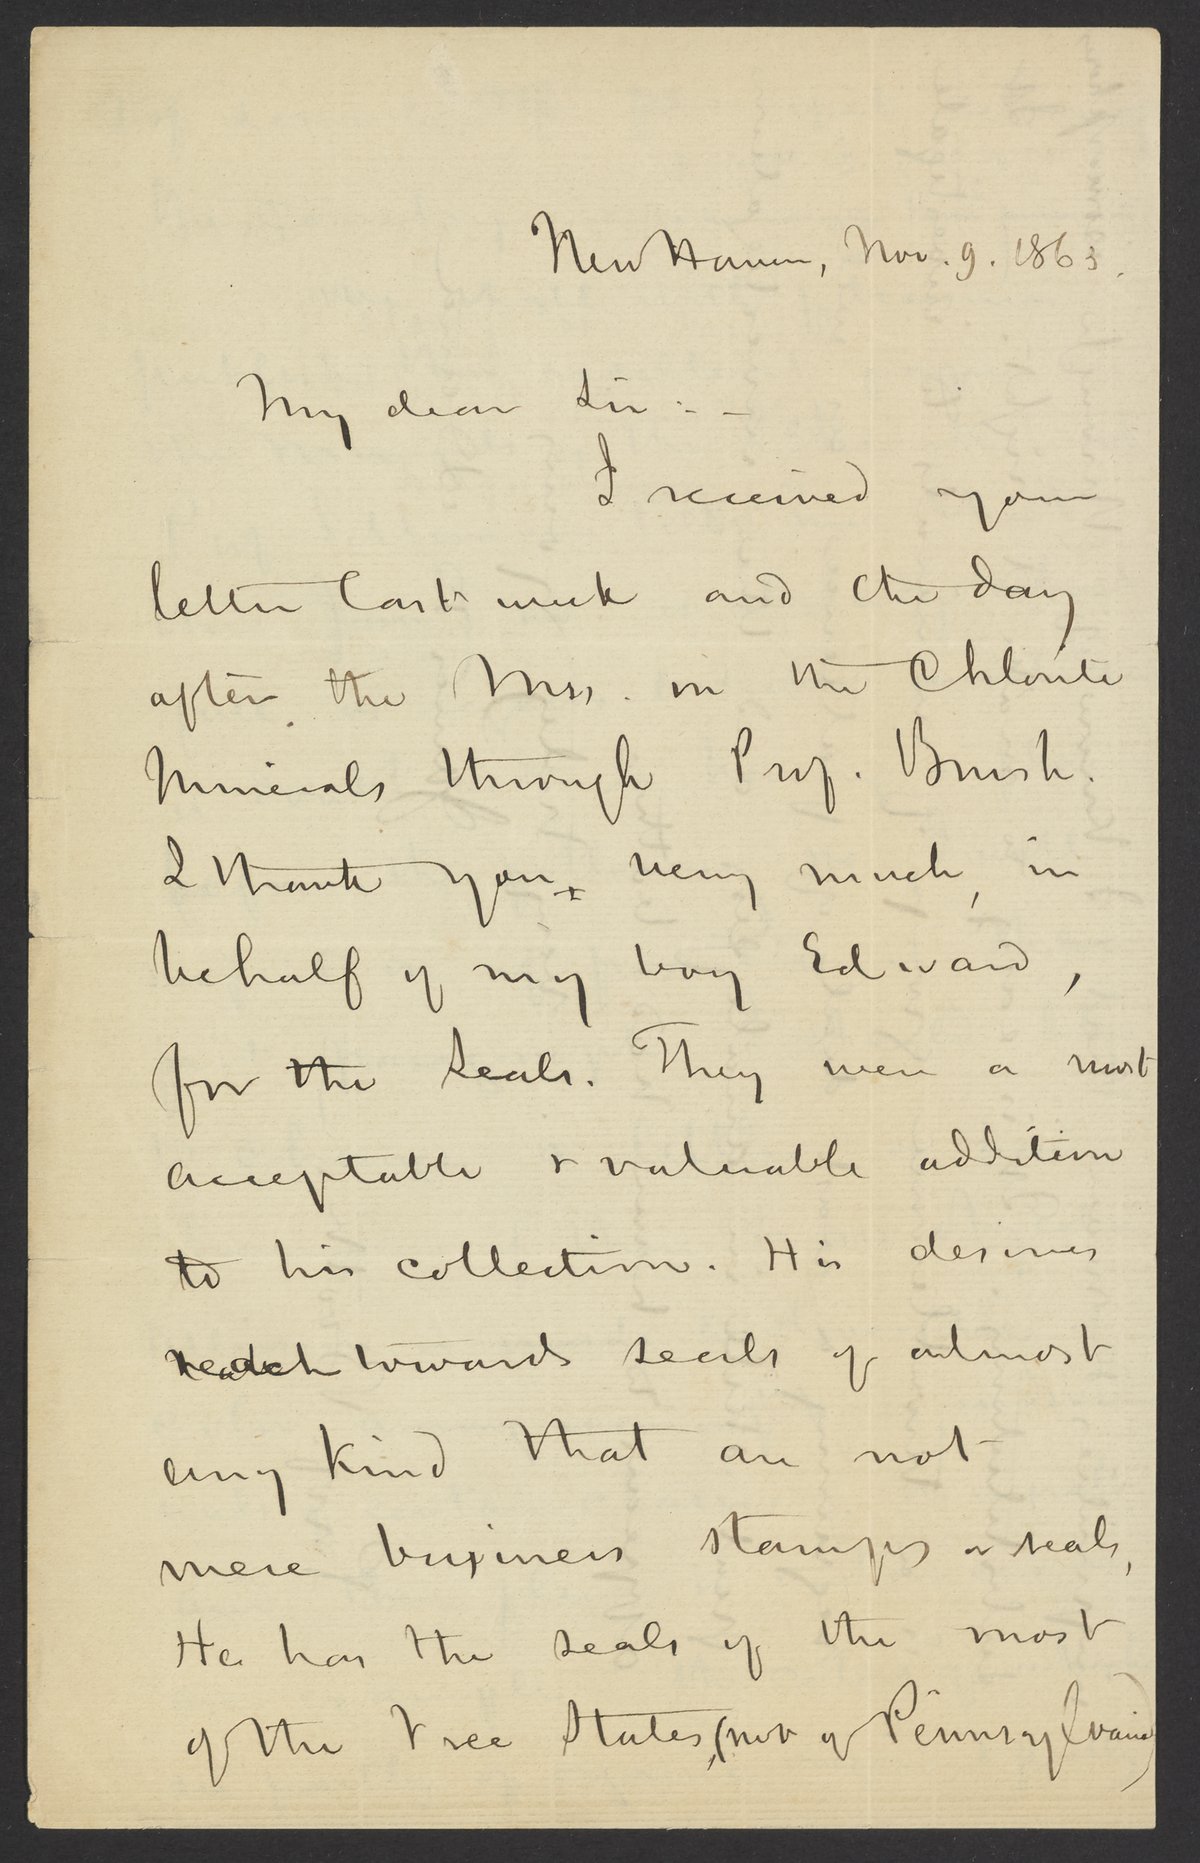 New Haven, Nov. 9. 1863.
My dear Sir:-
I received your
letter last week and the day
after the Mss. on the Chlorite
Minerals through Prof. Brush.
I thank you very much, in
behalf of my boy Edward,
for the Seals. They were a most
acceptable & valuable addition
to his collection. His desires
reach towards seals of almost
any kind that are not
mere business stamps or seals,
He has the seals of the most
of the Free States, (not of Pennsylvania)